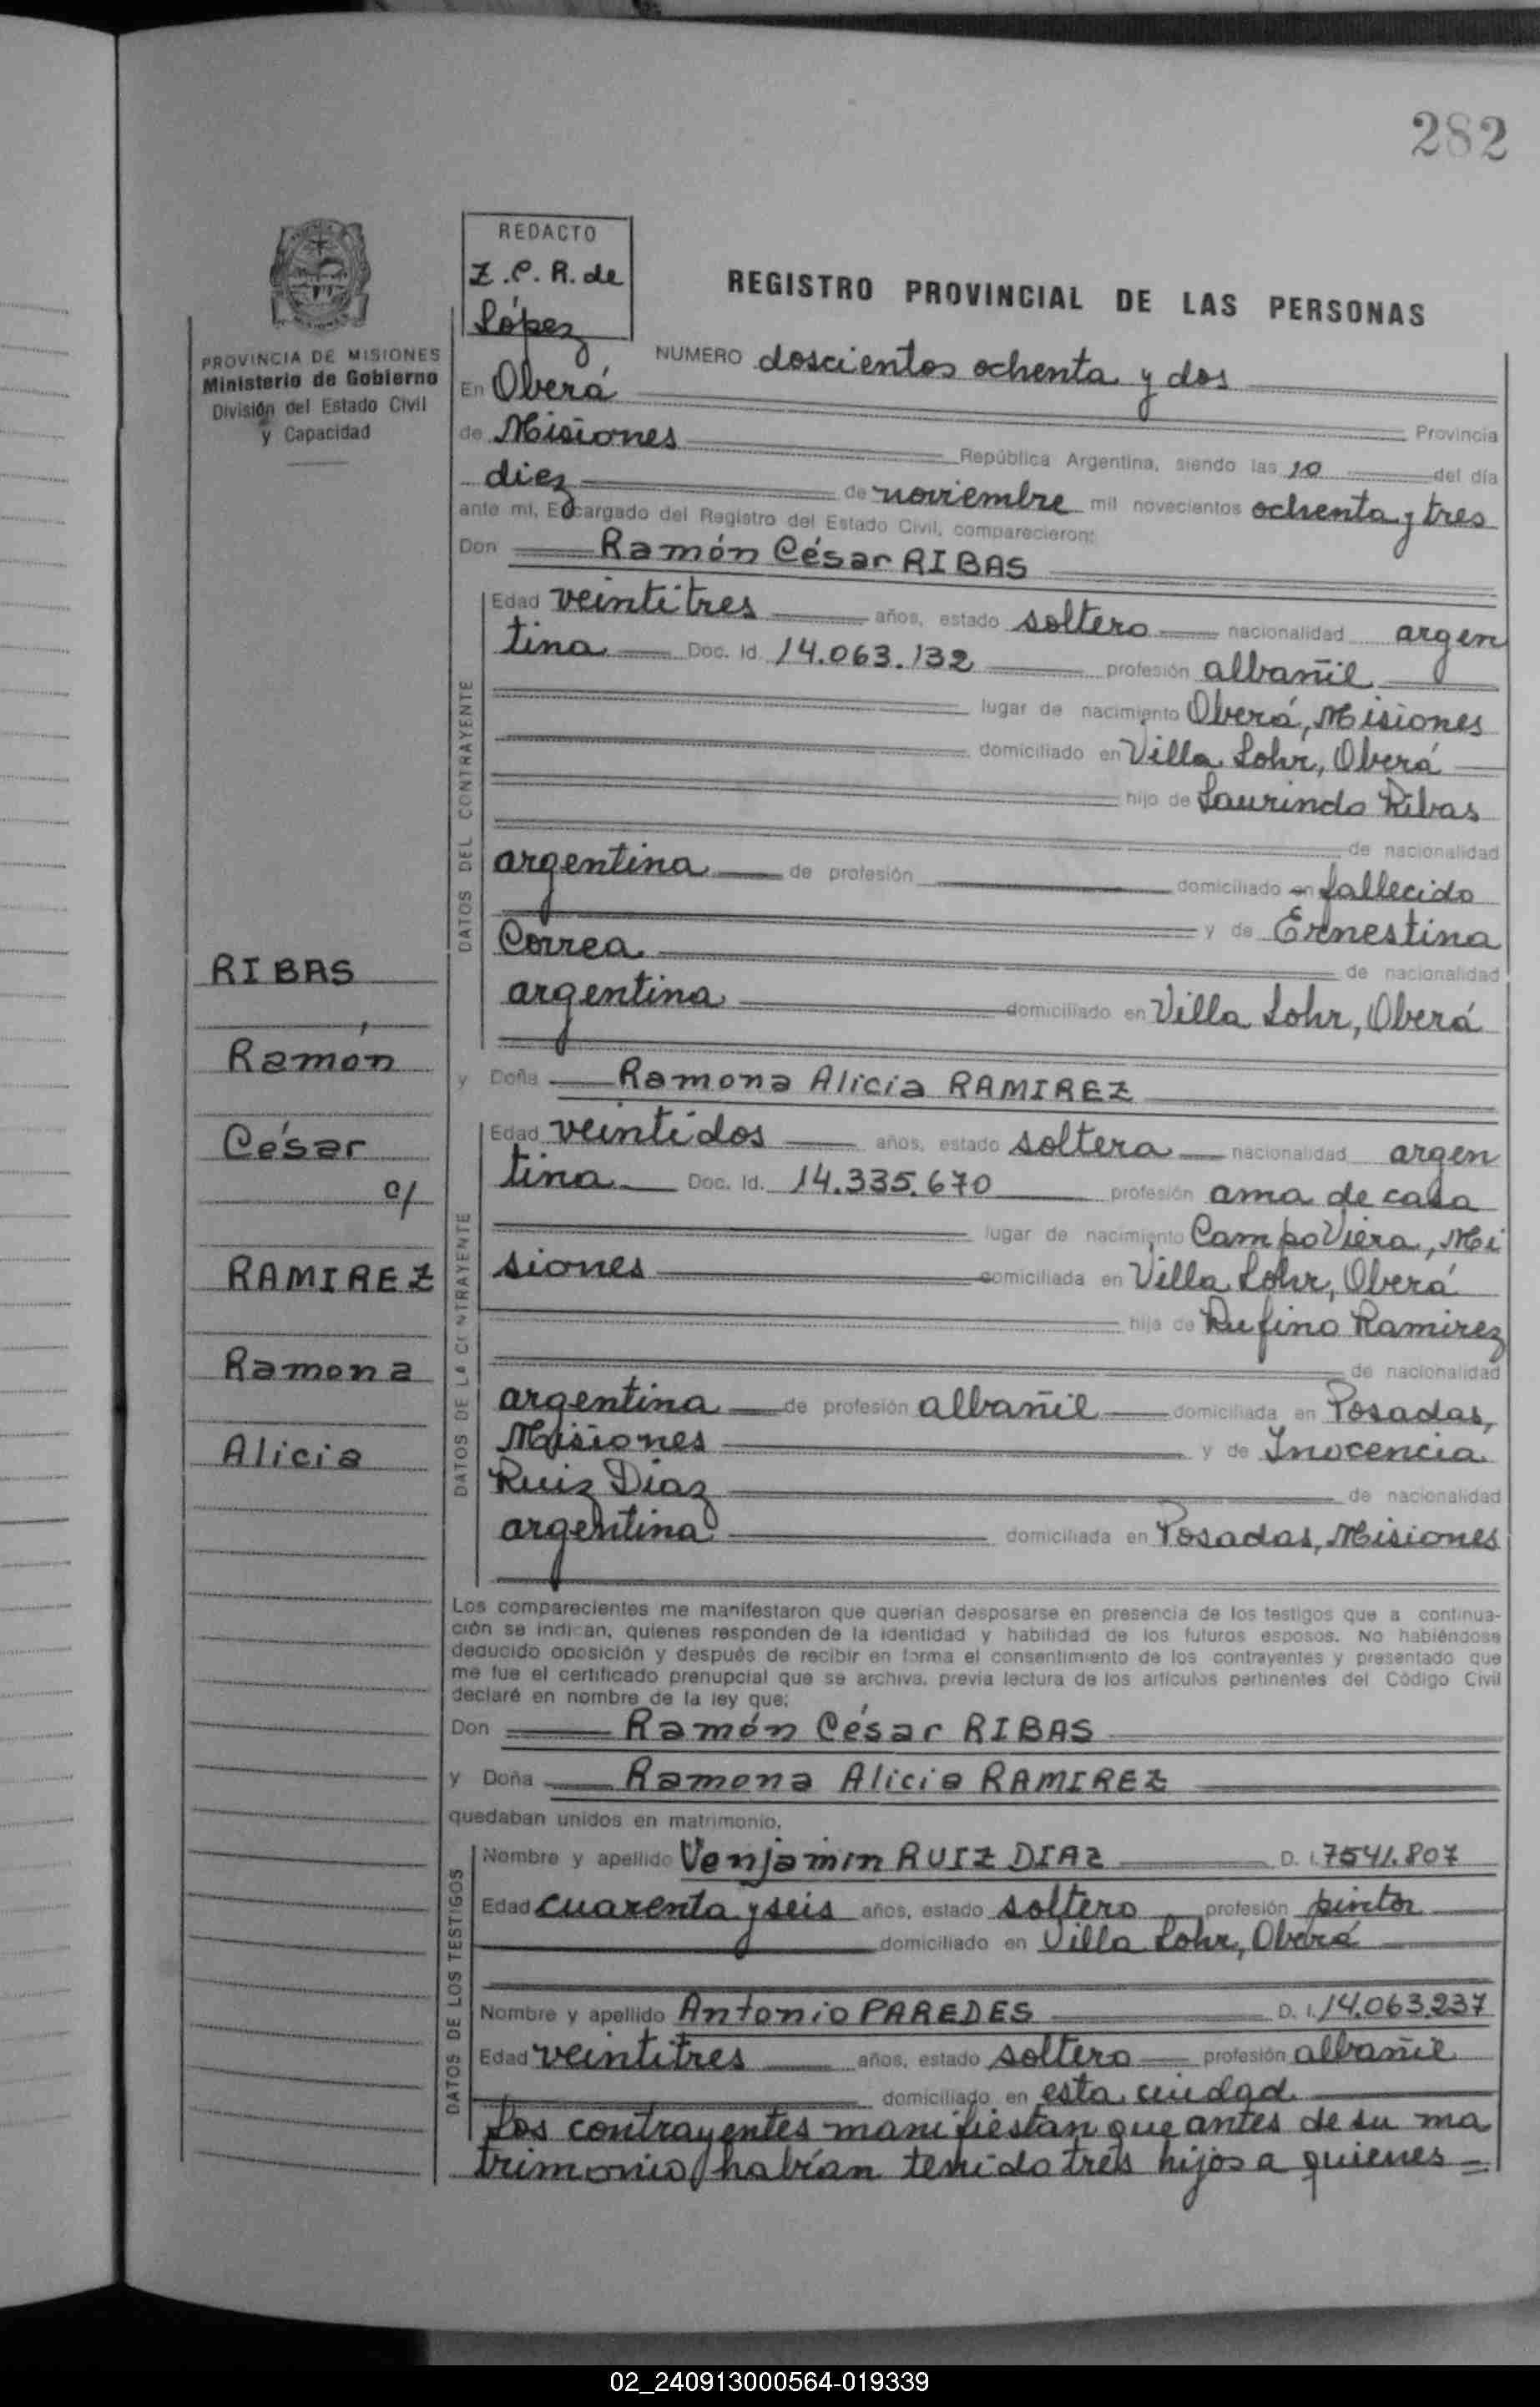 282
REDACTO
Z.C.R. de
López
REGISTRO PROVINCIAL DE LAS PERSONAS
PROVINCIA DE MISIONES
Ministerio de Gobierno
División del Estado Civil
y Capacidad
NUMERO doscientos ochenta y dos
En Oberá
Provincia
de Misiones República Argentina, siendo las 10 del día
diez de noviembre mil novecientos ochenta y tres
ante mi, Encargado del Registro del Estado Civil, comparecieron:
Don Ramón César RIBAS
DATOS DEL CONTRAYENTE
Edad veintitres años, estado soltero nacionalidad argen
tina Doc. Id. 14.063.132 profesión albañil
lugar de nacimiento Oberá, Misiones
domiciliado en Villa Lohr, Oberá
hijo de Laurindo Ribas
de nacionalidad
argentina de profesión domiciliado en fallecido
y de Ernestina
Correa de nacionalidad
argentina domiciliado en Villa Lohr, Oberá
y Doña Ramona Alicia RAMIREZ
DATOS DE LA CONTRAYENTE
Edad veintidos años, estado soltera nacionalidad argen
tina Doc. Id. 14.335.670 profesión ama de casa
lugar de nacimiento Campo Viera, Mi
siones domiciliada en Villa Lohr, Oberá
hija de Rufino Ramirez
de nacionalidad
argentina de profesión albañil domiciliada en Posadas,
Misiones y de Inocencia
Ruiz Díaz de nacionalidad
argentina domiciliada en Posadas, Misiones
RIBAS
Ramón
César
c/
RAMIREZ
Ramona
Alicia
Los comparecientes me manifestaron que querían desposarse en presencia de los testigos que a continua-
ción se indican, quienes responden de la identidad y habilidad de los futuros esposos. No habiéndose
deducido oposición y después de recibir en forma el consentimiento de los contrayentes y presentado que
me fue el certificado prenupcial que se archiva, previa lectura de los artículos pertinentes del Código Civil
declaré en nombre de la ley que:
Don Ramón César RIBAS
y Doña Ramona Alicia RAMIREZ
quedaban unidos en matrimonio.
DATOS DE LOS TESTIGOS
Nombre y apellido Venjamin RUIZ DIAZ D. I. 7541.807
Edad cuarenta y seis años, estado soltero profesión pintor
domiciliado en Villa Lohr, Oberá
Nombre y apellido Antonio PAREDES D. I. 14.063.237
Edad veintitres años, estado soltero profesión albañil
domiciliado en esta ciudad
Los contrayentes manifiestan que antes de su ma
trimonio habían tenido tres hijos a quienes =
02_240913000564-019339